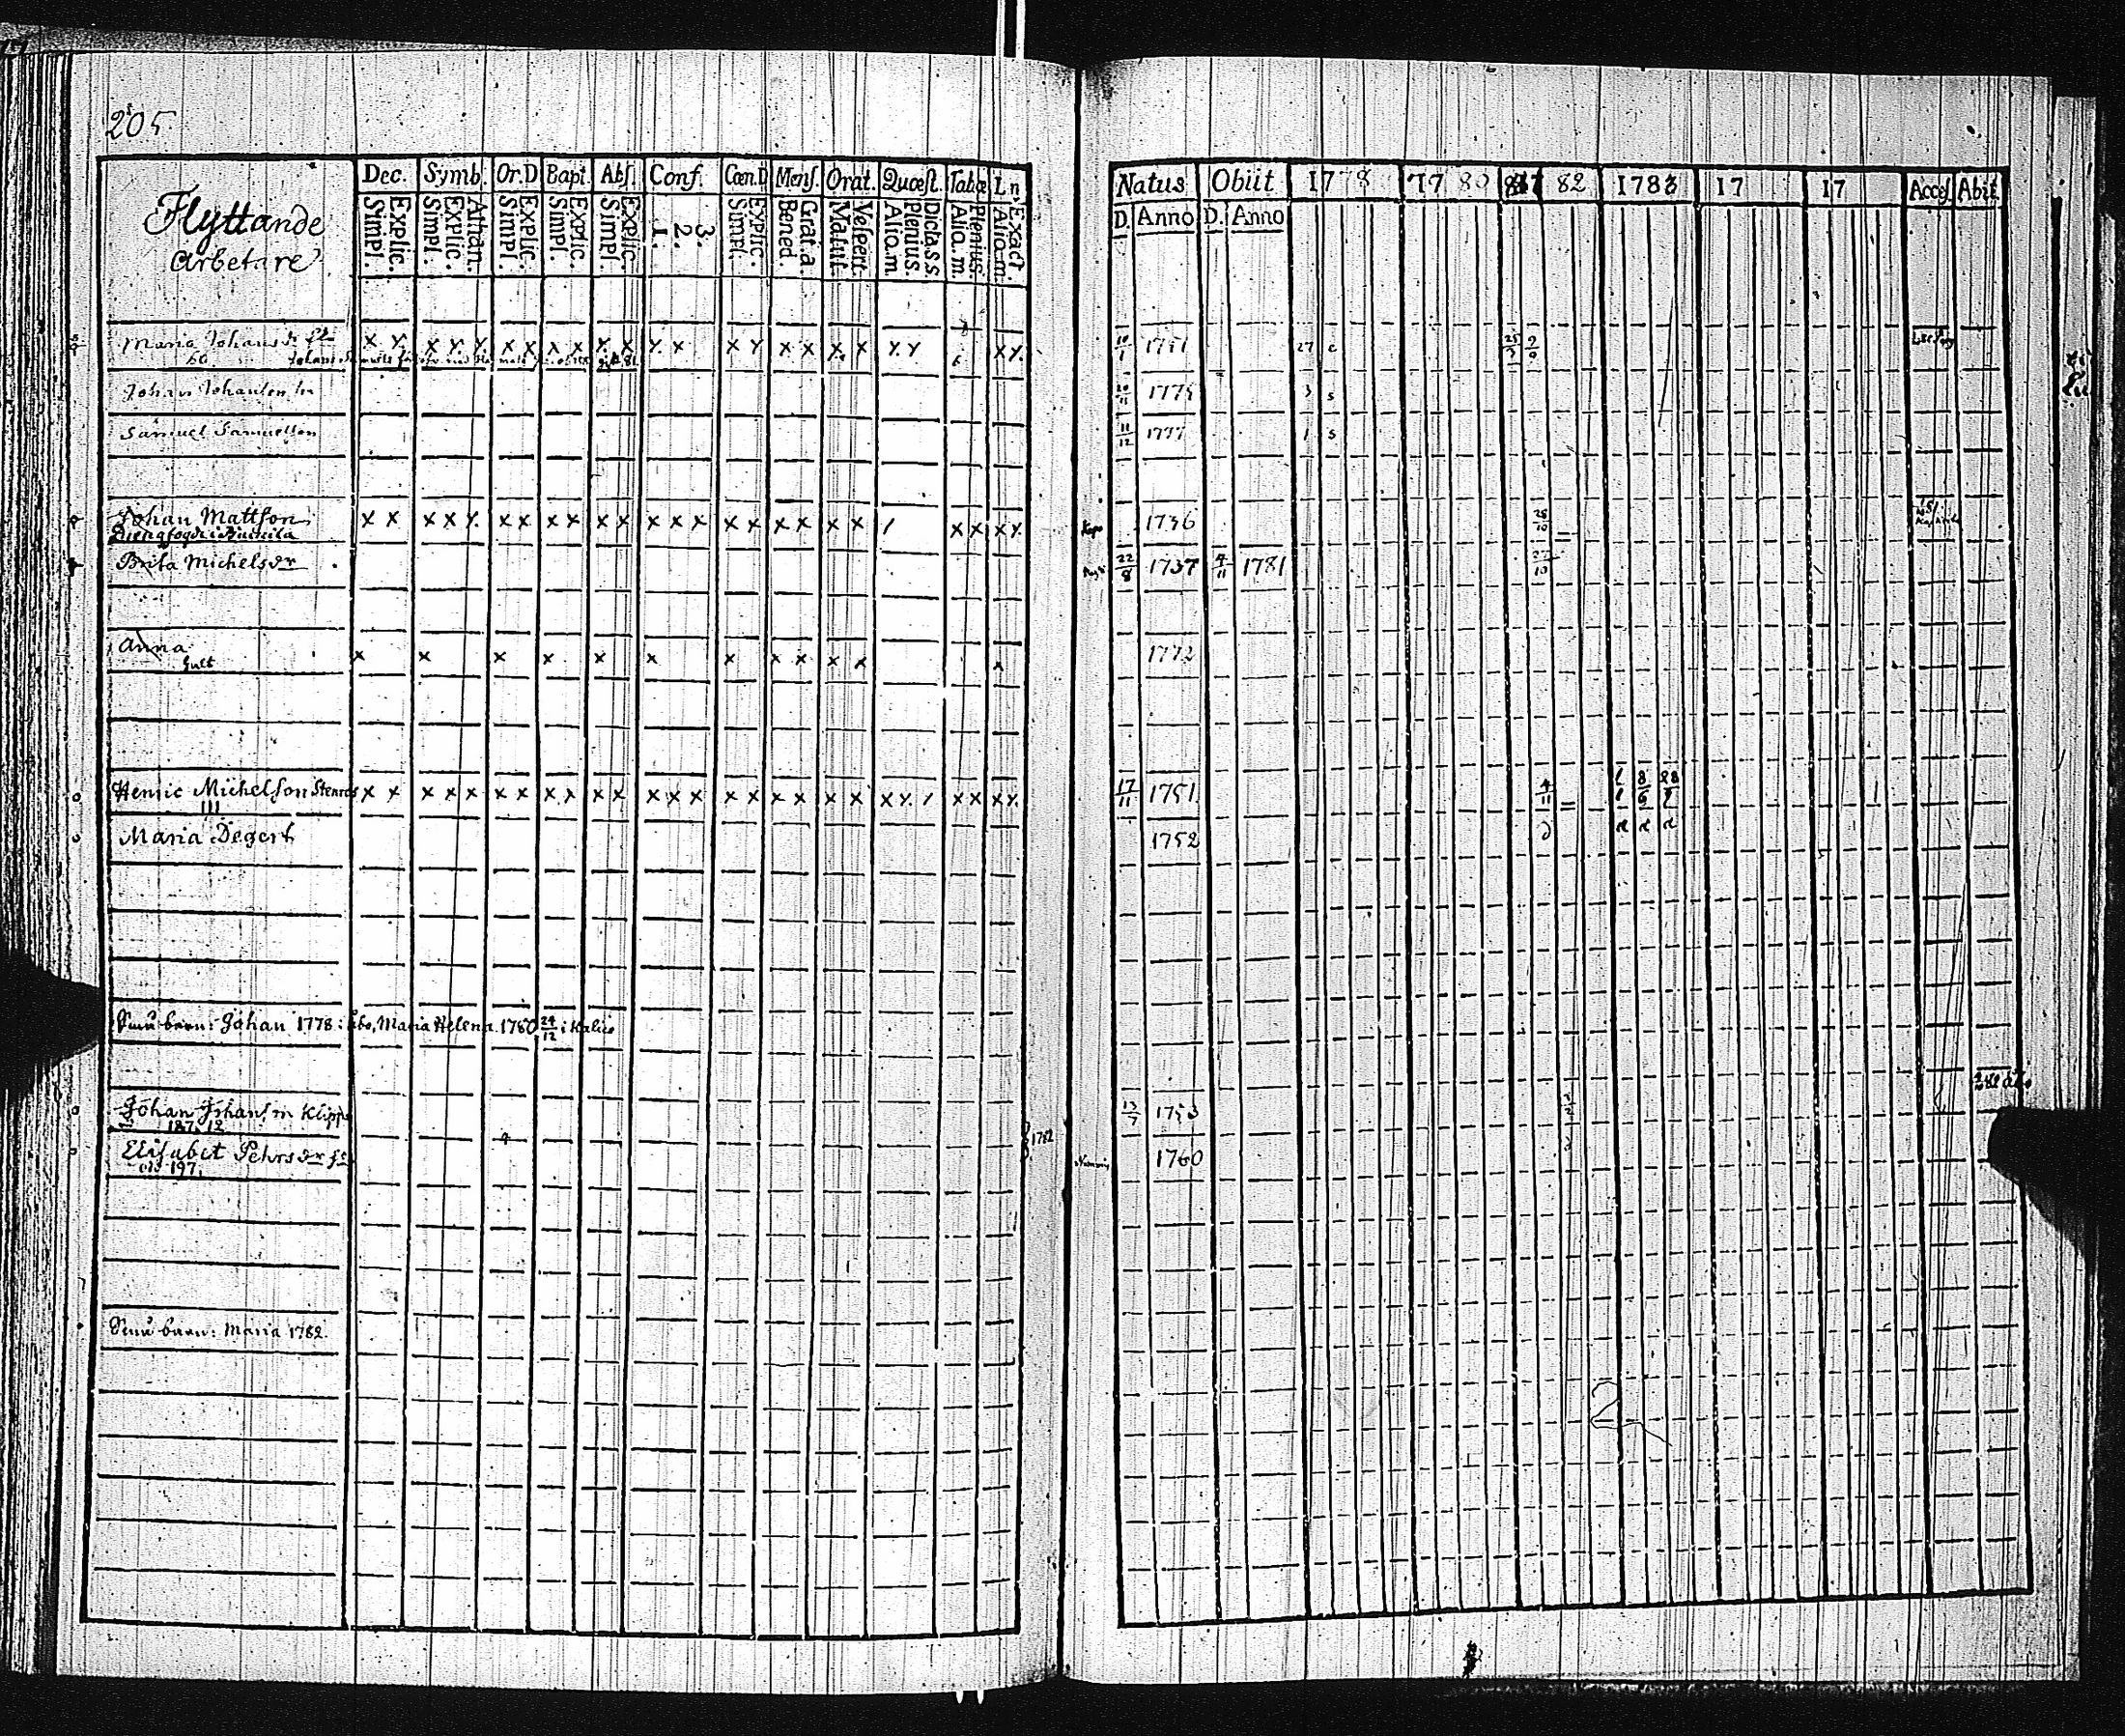 205
Flyttande
Arbetare
Dec. Symb. Or.D Bapt. Abs. Conf. Cœn.D Mens. Orat. Quœst. Tabæ Ln.
Simpl. Explic. Simpl. Explic. Athan. Simpl. Explic. Simpl. Explic. Simpl. Explic. 1. 2. 3. Simpl. Explic. Bened. Grat.a. Matut. Vespert. Alio.m. Plenius. Dicta.s.s. Alio.m. Plenius. Alio.m. Exact.
Natus Obiit 1778 1780 82 1783 17 17 Acces. Abit
D. Anno D. Anno
Maria Johansdr
x x x x x x x x x x x x x x x x x x x x x x x 10/1 1751 27
Johan Johanson
20/11 1775 3 s
Samuel Samuelson
11/12 1777 1 s
Johan Mattson
x x x x x x x x x x x x x x x x x x x / x x x x 1736 25/10
Brita Michelsdr
22/8 1737 4/11 1781
Anna
x x x x x x x x x x x x 1772
Henric Michelson
x x x x x x x x x x x x x x x x x x x x x / x x x x 17/11 1751 4/11
Maria Degert
1752
barn: Johan 1778: Åbo, Maria Helena 1780 24/12 i
Johan Johanson Klipp
187. 12
13/7 1753
Elisabet Pehrsdr
197.
1782
1760
barn: Maria 1782.